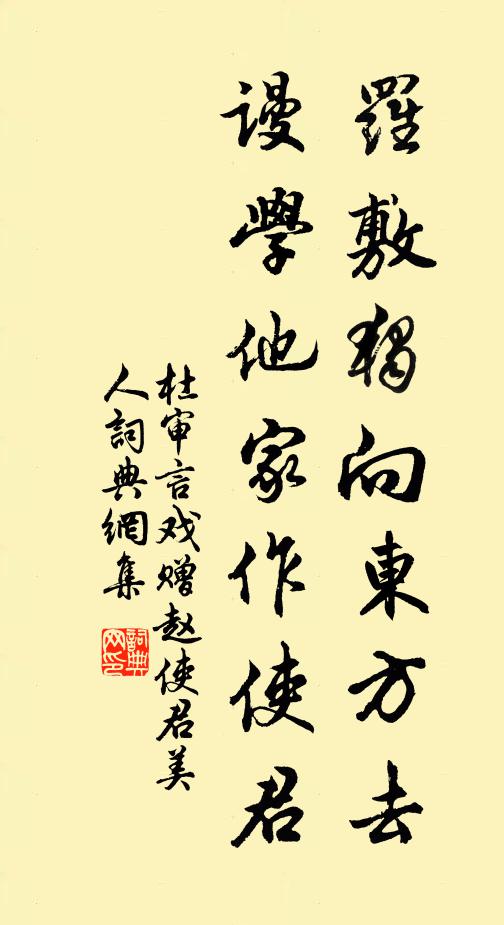 羅敷獨向東方去
謾學他家作使君
杜审言戏赠赵使君美
人詞典網集
詞典网印